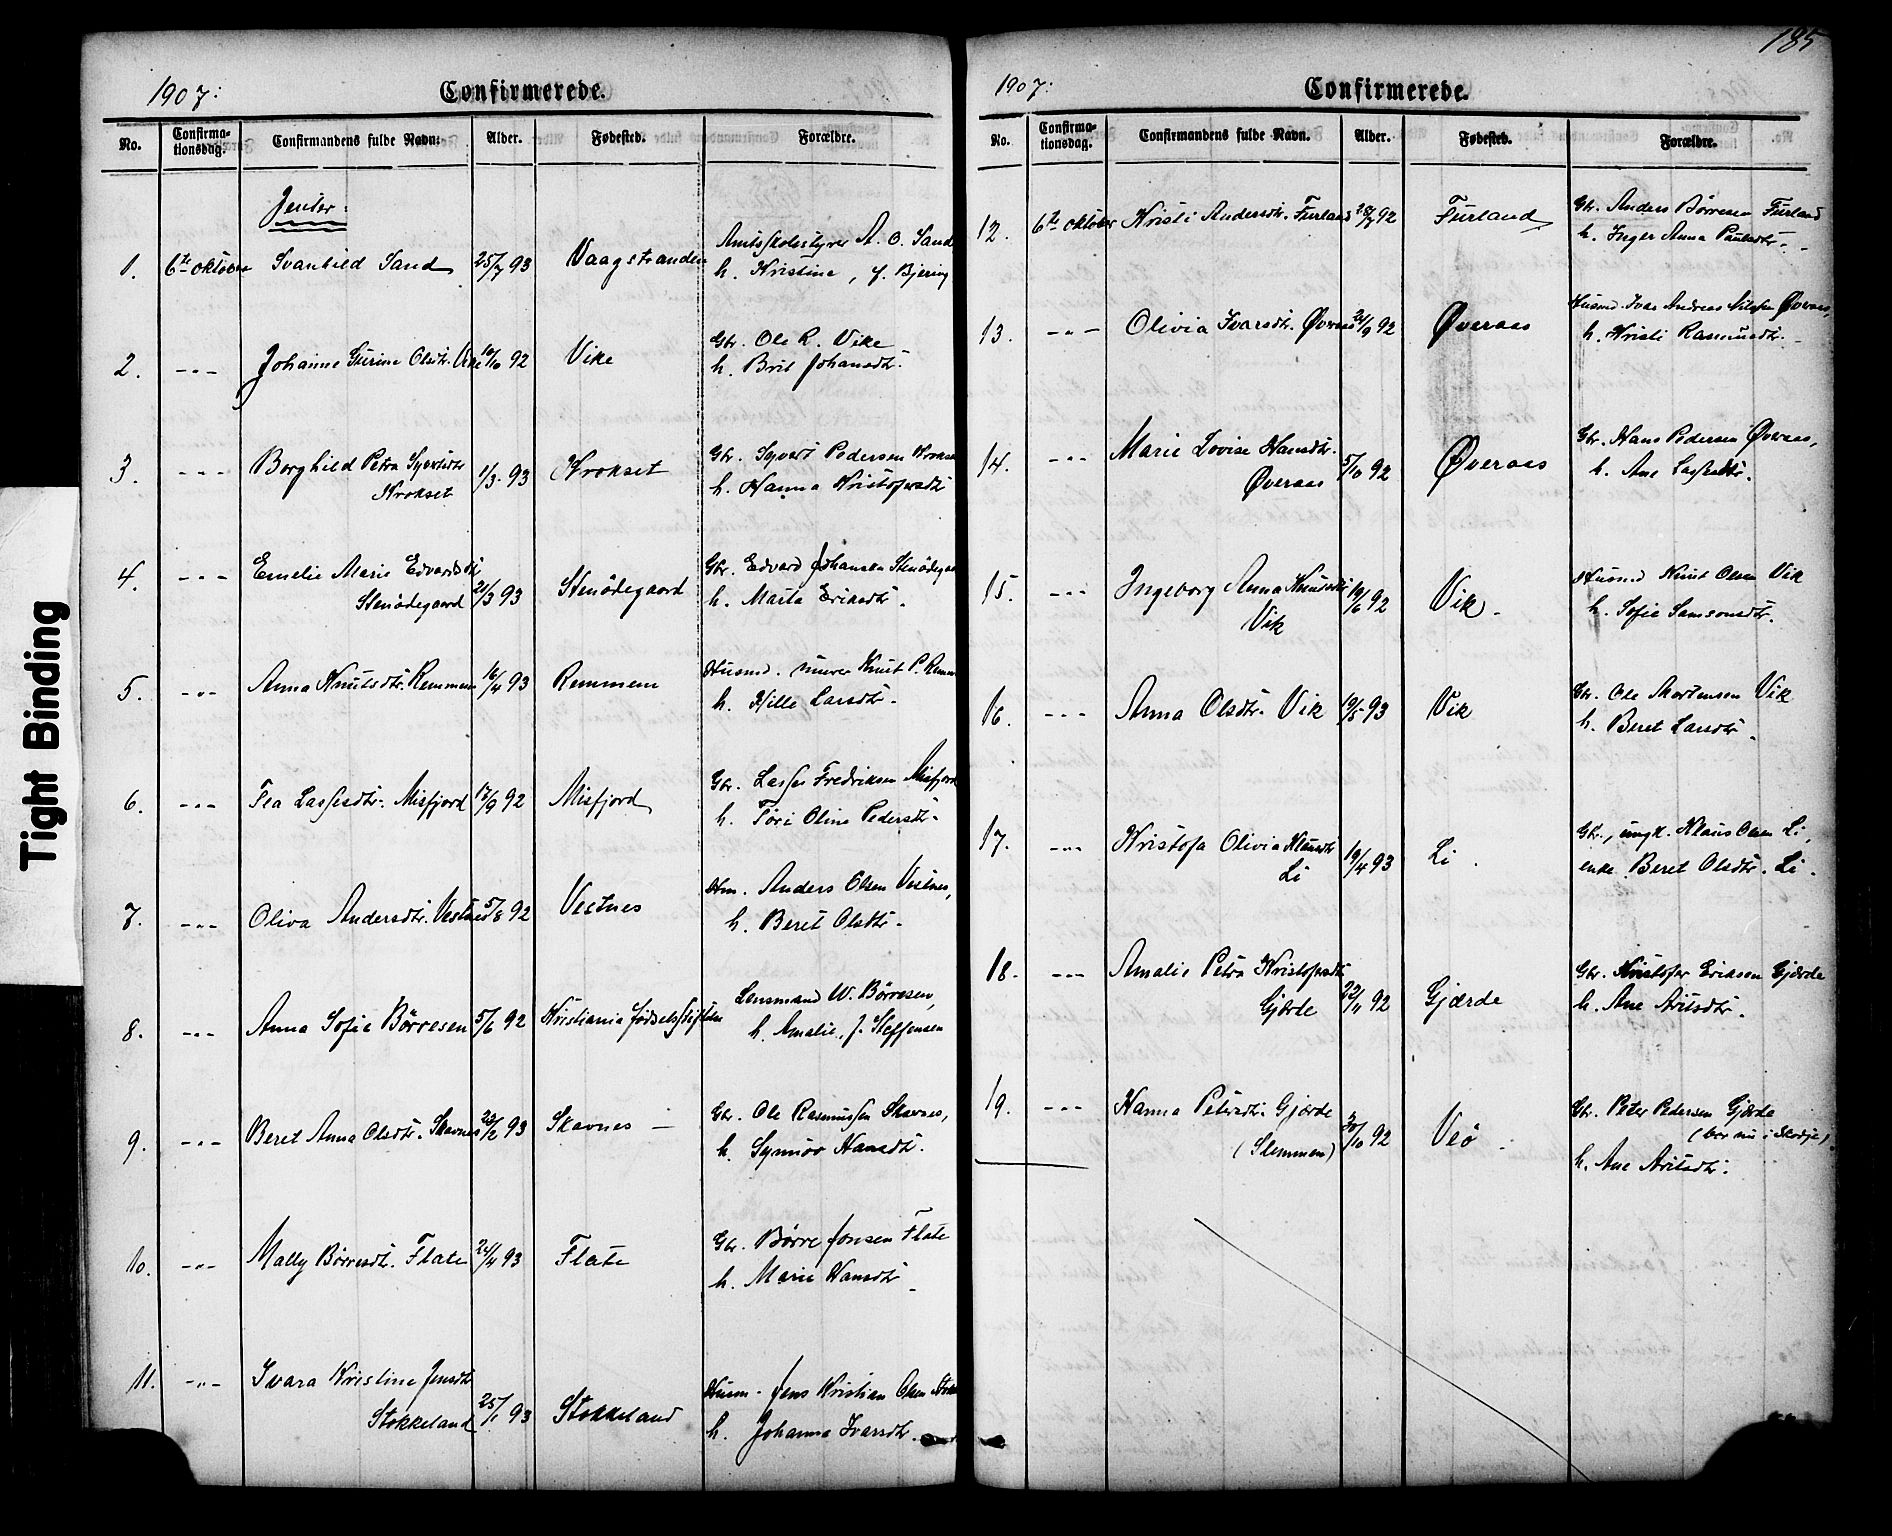 Tight Binding
1907:
Confirmerede.
No. Confirma-tionsdag. Confirmandens fulde Navn: Alder. Fødested. Forældre.
Jenter:
1. 6te oktober Svanhild Sand 25/7 93 Vaagstranden Amtsskolestyrer A. O. Sand
h. Kristine, f. Bjering
2. -"- Johanne Sterine Olsdtr. Vike 10/10 92 Vike Gbr. Ole R. Vike
h. Brit Johansdtr.
3. -"- Borghild Petra Syvertsdtr 1/3. 93 Krokset Gbr. Syvert Pedersen
Krokset h. Hanna Kristofersdtr
4. -"- Emelie Marie Edvardsdtr Gbr. Edvard Johansen
Stenødegaard 21/3 93 Stenødegaard h. Marta Eriksdtr.
5. -"- Anna Knutsdtr. Remmem 16/4 93 Remmem Husmd. murer Knut P.
h. Kille Larsdtr.
6. -"- Tea Lassesdtr. Misfjord 17/9 92 Misfjord Gbr. Lasse Fredriksen Misfjord
h. Tøri Oline Pedersdtr.
7. -"- Oliva Andersdtr. Vestnes 5/8 92 Vestnes Hm. Anders Olsen Vestnes,
h. Beret Olsdtr.
8. -"- Anna Sofie Børresen 5/6 92 Kristiania fødselsstiftelse Lensmand W. Børresen,
h. Amalie, f. Steffensen
9. -"- Beret Anna Olsdtr. Skavnes 23/2 93 Skavnes Gbr. Ole Rasmussen Skavnes,
h. Synnøv Hansdtr.
10. -"- Mally Børresdtr. Flate 24/4 93 Flate Gbr. Børre Jonsen Flate
h. Marie Hansdtr
11. -"- Ivara Kristine Jensdtr Husm. Jens Kristian Olsen
Stokkeland 25/1 93 Stokkeland h. Johanna Ivarsdtr.
185
1907:
Confirmerede.
No. Confirma-tionsdag. Confirmandens fulde Navn. Alder. Fødested. Forældre.
12. 6te oktober Kristi Andersdtr. Furland 28/7 92 Furland Gbr. Anders Børresen Furland
h. Inger Anna Paulsdtr.
13. -"- Olivia Ivarsdtr. Øveraas 24/9 92 Øveraas Husmd. Ivar Andreas Nilssen Øveraas,
h. Kristi Rasmusdtr.
14. -"- Marie Lovise Hansdtr. Gbr. Hans Pedersen Øveraas,
Øveraas 5/10 92 Øveraas h. Ane Lassesdtr.
15. -"- Ingeborg Anna Knutsdtr 19/6 92 Vik. Husmd Knut Olsen Vik
Vik h. Sofie Samsonsdtr.
16. -"- Anna Olsdtr. Vik 19/5 93 Vik Gbr. Ole Mortensen Vik
h. Beret Larsdtr.
17. -"- Kristofa Olivia Klausdtr Gbr., ungk. Klaus Olsen Li,
Li 19/4 93 Li. enke Beret Olsdtr. Li.
18. -"- Amalie Petra Kristofersdtr Gbr. Kristofer Eriksen Gjærde
Gjerde 22/11 92 Gjærde h. Ane Arilsdtr.
19. -"- Hanna Petersdtr. Gjærde Gbr. Peter Pedersen Gjærde
(Slemmen) 30/10 92 Veø (bor nu i Skodje)
h. Ane Arilsdtr.